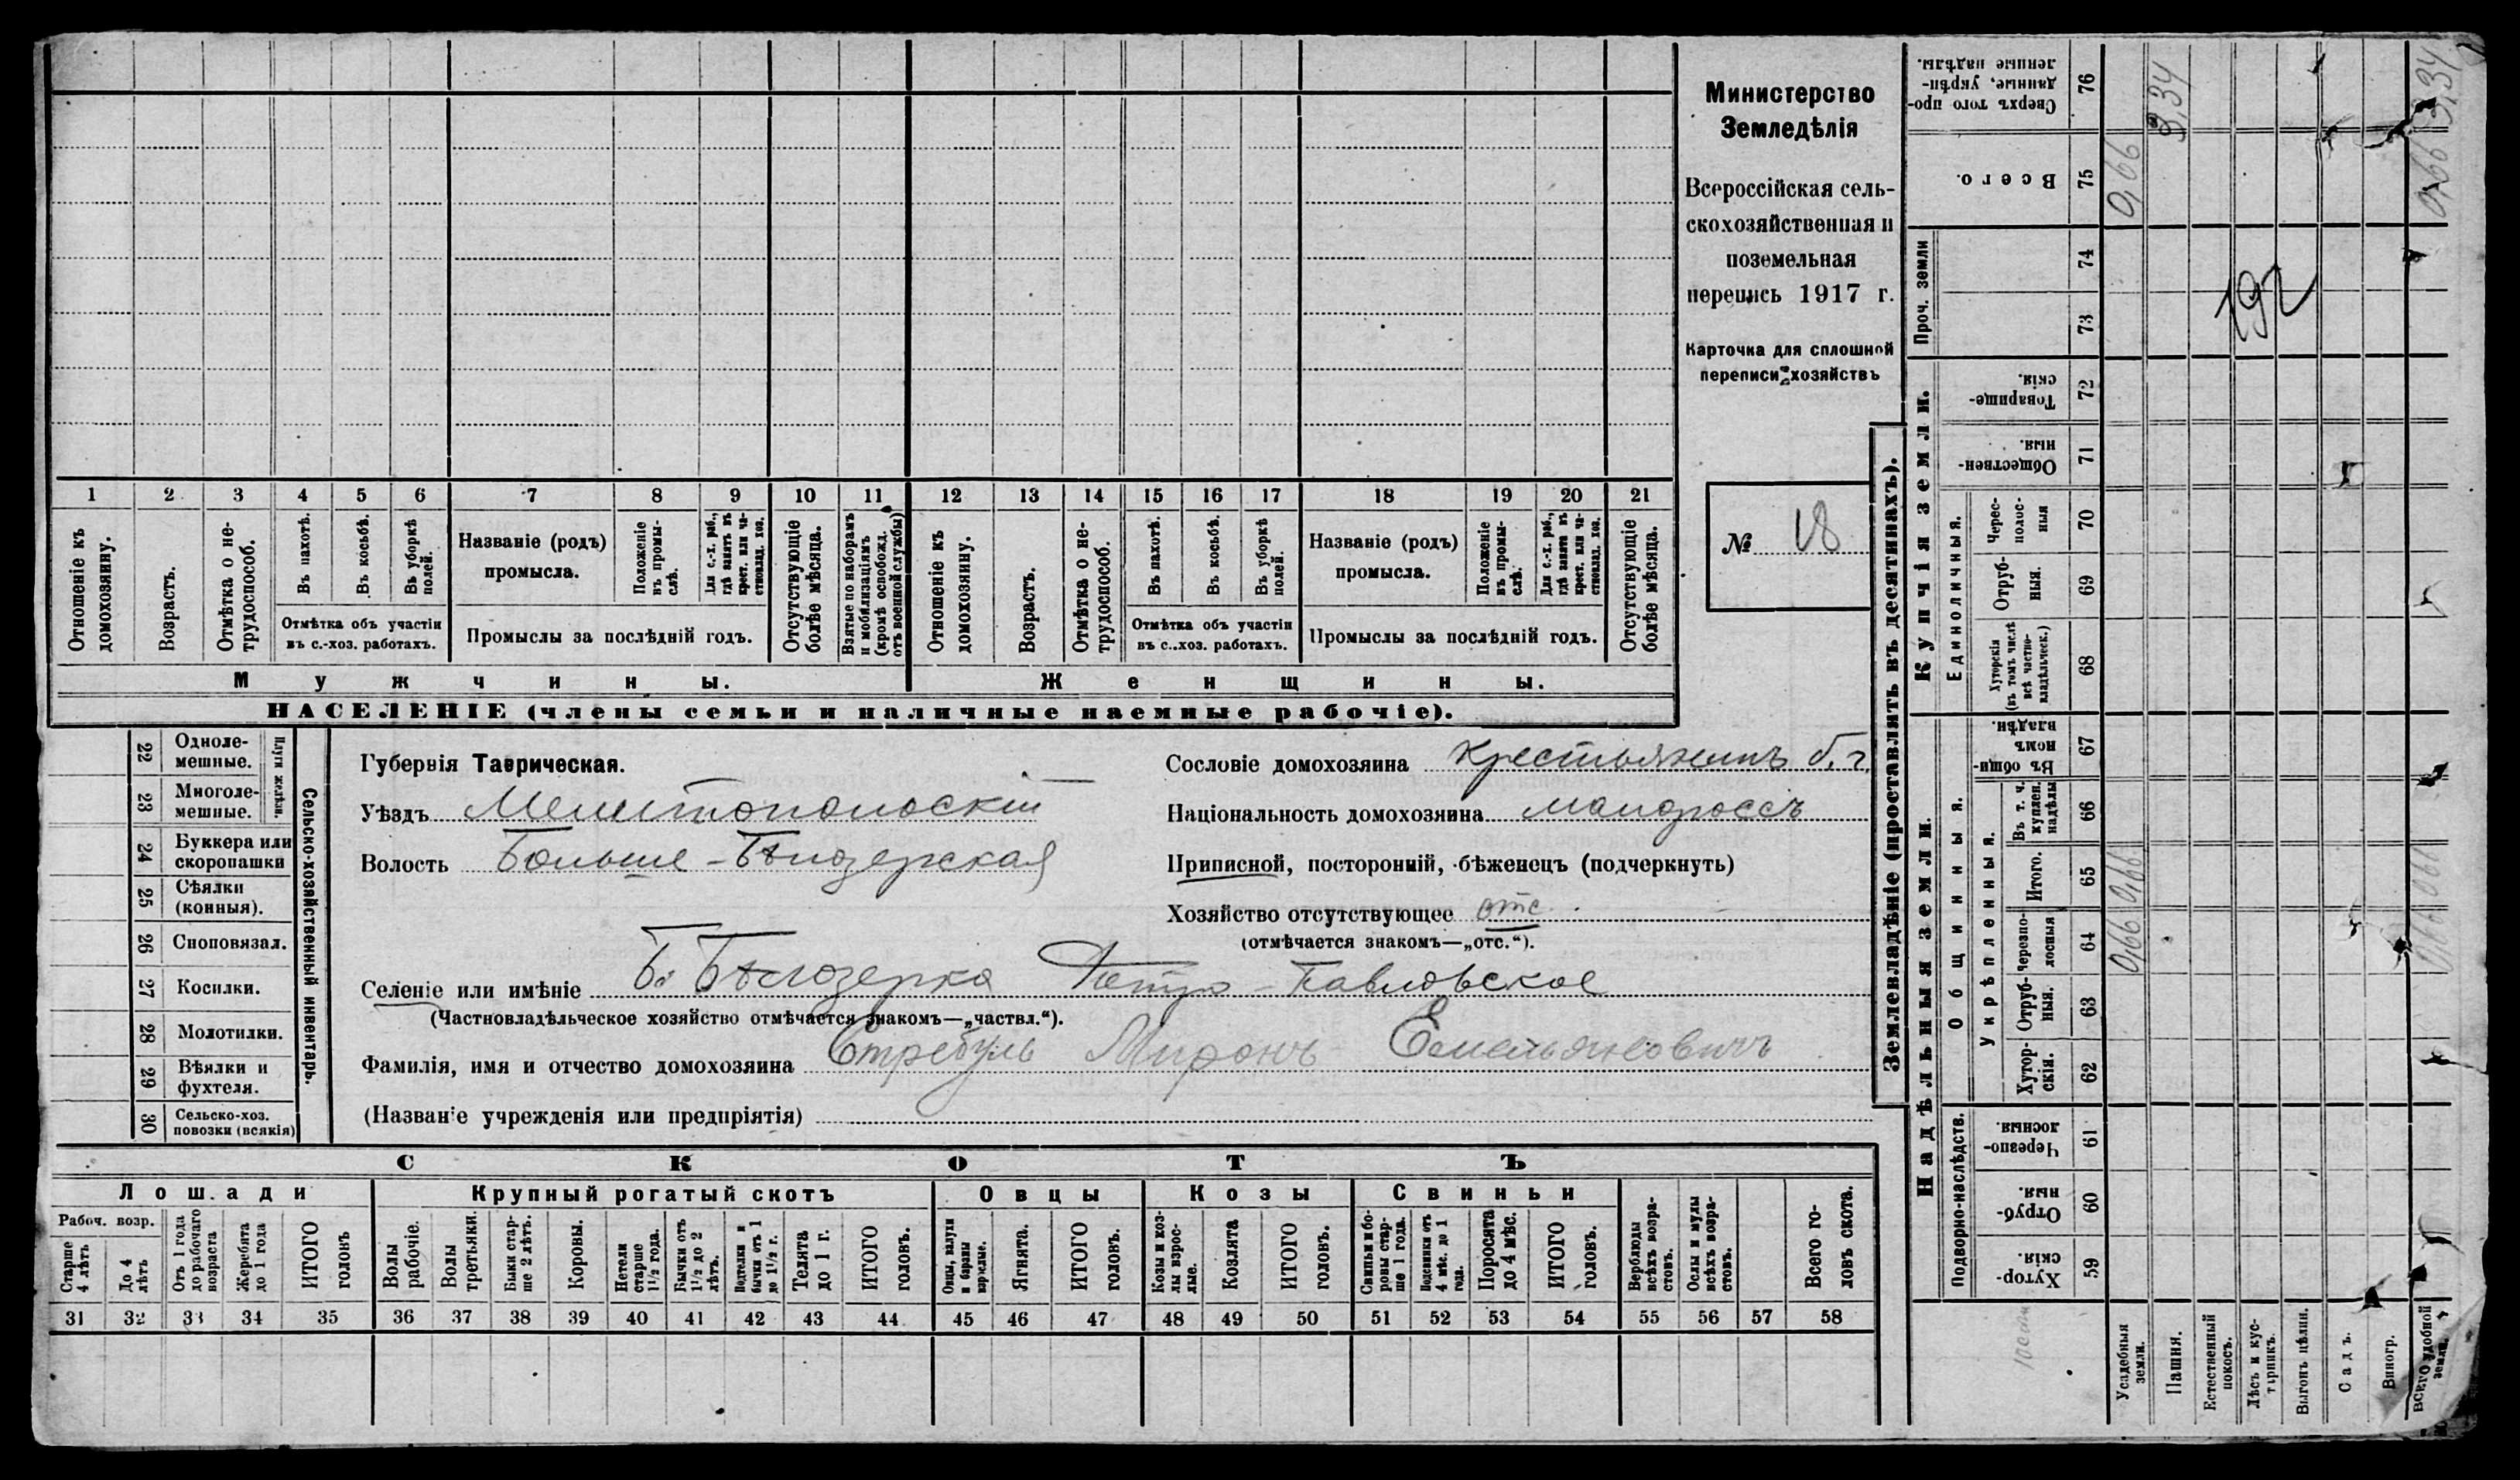 Министерство
Земледѣлія
Всероссійская сель-
скохозяйственная и
поземельная
перепись 1917 г.
Карточка для сплошной
переписи хозяйствъ
№ 18
1 2 3 4 5 6 7 8 9 10 11 12 13 14 15 16 17 18 19 20 21
Отношеніе къ домохозяину.
Возрастъ.
Отмѣтка о не-трудоспособ.
Въ пахотѣ.
Въ косьбѣ.
Въ уборкѣ полей.
Отмѣтка объ участіи
въ с.-хоз. работахъ.
Названіе (родъ)
промысла.
Положеніе въ промы-слѣ.
Для с.-х. раб., гдѣ занятъ въ крест. или ча-стновлад. хоз.
Промыслы за послѣдній годъ.
Отсутствующіе болѣе мѣсяца.
Взятые по наборамъ и мобилизаціямъ (кромѣ освобожд. отъ военной службы)
Отношеніе къ домохозяину.
Возрастъ.
Отмѣтка о не-трудоспособ.
Въ пахотѣ.
Въ косьбѣ.
Въ уборкѣ полей.
Отмѣтка объ участіи
въ с..хоз. работахъ.
Названіе (родъ)
промысла.
Положеніе въ промы-слѣ.
Для с.-х. раб., гдѣ занята въ крест. или ча-стновлад. хоз.
Промыслы за послѣдній годъ.
Отсутствующіе болѣе мѣсяца.
Мужчины.
Женщины.
НАСЕЛЕНІЕ (члены семьи и наличные наемные рабочіе).
22 Одноле-мешные.
23 Многоле-мешные.
Плуги желѣзн.
24 Буккера или скоропашки
25 Сѣялки (конныя).
26 Сноповязал.
27 Косилки.
28 Молотилки.
29 Вѣялки и фухтеля.
30 Сельско-хоз. повозки (всякія)
Сельско-хозяйственный инвентарь.
Губернія Таврическая.
Уѣздъ Мелитопольскій
Волость Больше-Бѣлозерская
Сословіе домохозяина Крестьянинъ б. г.
Національность домохозяина малороссъ
Приписной, посторонній, бѣженецъ (подчеркнуть)
Хозяйство отсутствующее отс.
(отмѣчается знакомъ—„отс.“).
Селеніе или имѣніе Б. Бѣлозерка Петро-Павловское
(Частновладѣльческое хозяйство отмѣчается знакомъ—„частвл.“).
Фамилія, имя и отчество домохозяина Стребуль Миронъ Емельяновичъ
(Названіе учрежденія или предпріятія)
СКОТЪ
Лошади
Крупный рогатый скотъ
Овцы
Козы
Свиньи
Рабоч. возр.
Старше 4 лѣтъ
До 4 лѣтъ
Отъ 1 года до рабочаго возраста
Жеребята до 1 года
ИТОГО головъ
Волы рабочіе.
Волы третьяки.
Быки стар-ше 2 лѣтъ.
Коровы.
Нетели старше 1½ года.
Бычки отъ 1½ до 2 лѣтъ.
Подтелки и бычки отъ 1 до 1½ г.
Телята до 1 г.
ИТОГО головъ.
Овцы, валухи и бараны взрослые.
Ягнята.
ИТОГО головъ.
Козы и коз-лы взрос-лые.
Козлята
ИТОГО головъ.
Свиньи и бо-ровы стар-ше 1 года.
Подсвинки отъ 4 мѣс. до 1 года.
Поросята до 4 мѣс.
ИТОГО головъ.
Верблюды всѣхъ возра-стовъ.
Ослы и мулы всѣхъ возра-стовъ.
Всего го-ловъ скота.
31 32 33 34 35 36 37 38 39 40 41 42 43 44 45 46 47 48 49 50 51 52 53 54 55 56 57 58
Землевладѣніе (проставлять въ десятинахъ).
Надѣльныя земли.
Купчія земли.
Проч. земли
Подворно-наслѣдств.
Общинныя.
Укрѣпленныя.
Единоличныя.
59 Хутор-скія.
60 Отруб-ныя.
61 Черезпо-лосныя.
62 Хутор-скія.
63 Отруб-ныя.
64 Черезпо-лосныя 0,66
65 Итого. 0,66
66 Въ т. ч. куплен. надѣлы
67 Въ общин-номъ владѣн.
68 Хуторскія (въ томъ числѣ всѣ частно-владѣльческ.)
69 Отруб-ныя.
70 Черес-полос-ныя
71 Обществен-ныя.
72 Товарище-скія.
73
74
192
75 Всего. 0,66
76 Сверхъ того про-данные, укрѣп-ленные надѣлы. 3,34
0,66 0,66 0,66 3,34
Усадебныя земли.
Пашня.
Естественный покосъ.
Лѣсъ и кус-тарникъ.
Выгонъ цѣлин.
Садъ.
Виногр.
Всего удобной земли.